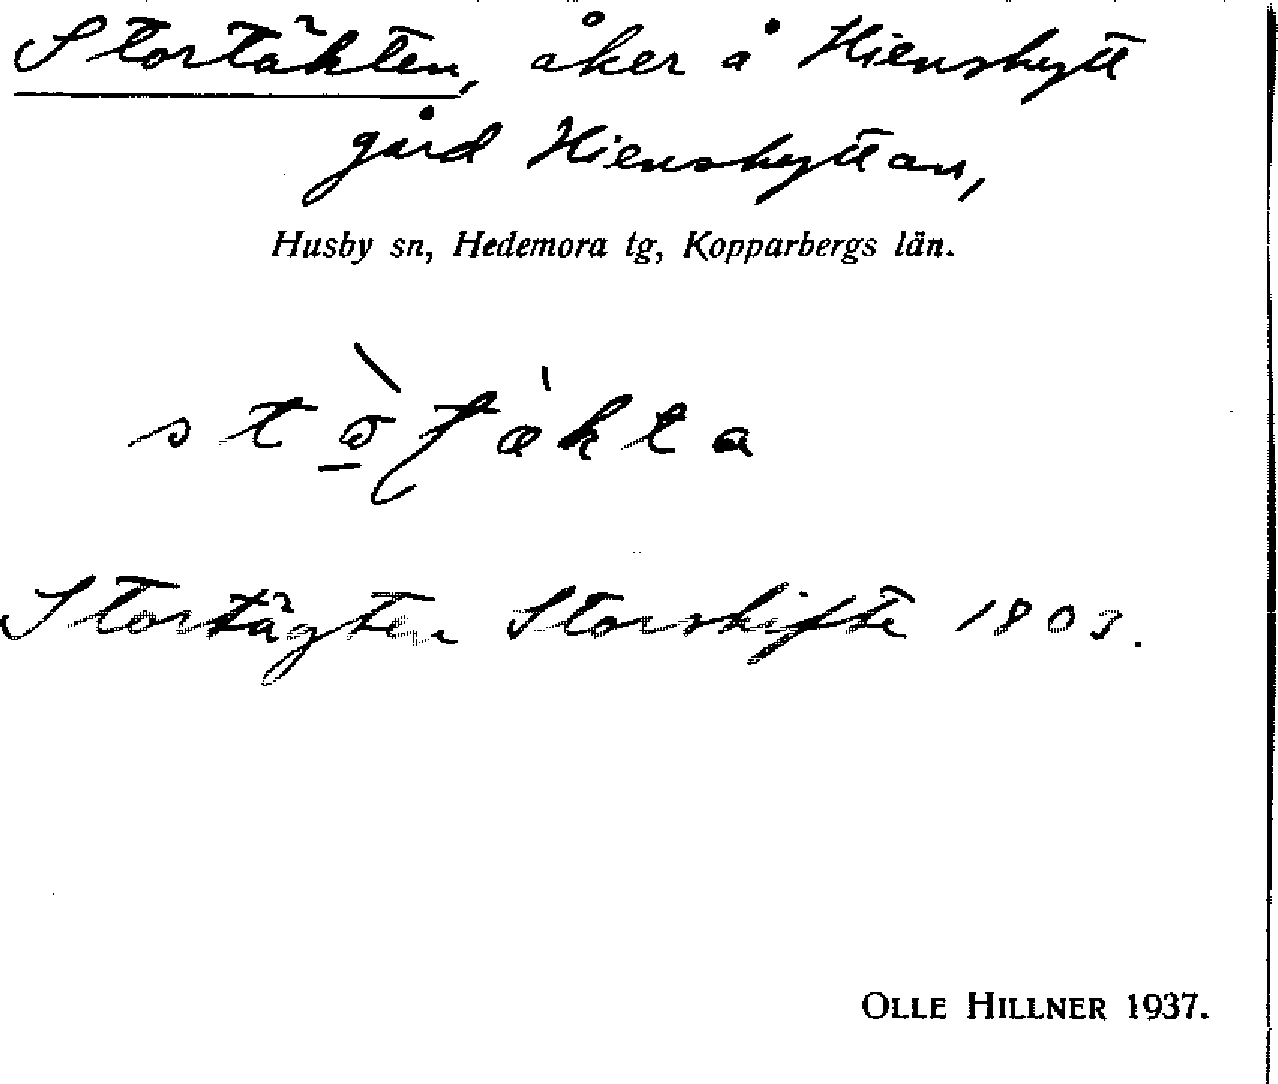 Stortäkten, åker å Hienshytt
gård Hienshyttan,
Husby sn, Hedemora tg, Kopparbergs län.
Stortägten Storskifte 1803.
OLLE HILLNER 1937.